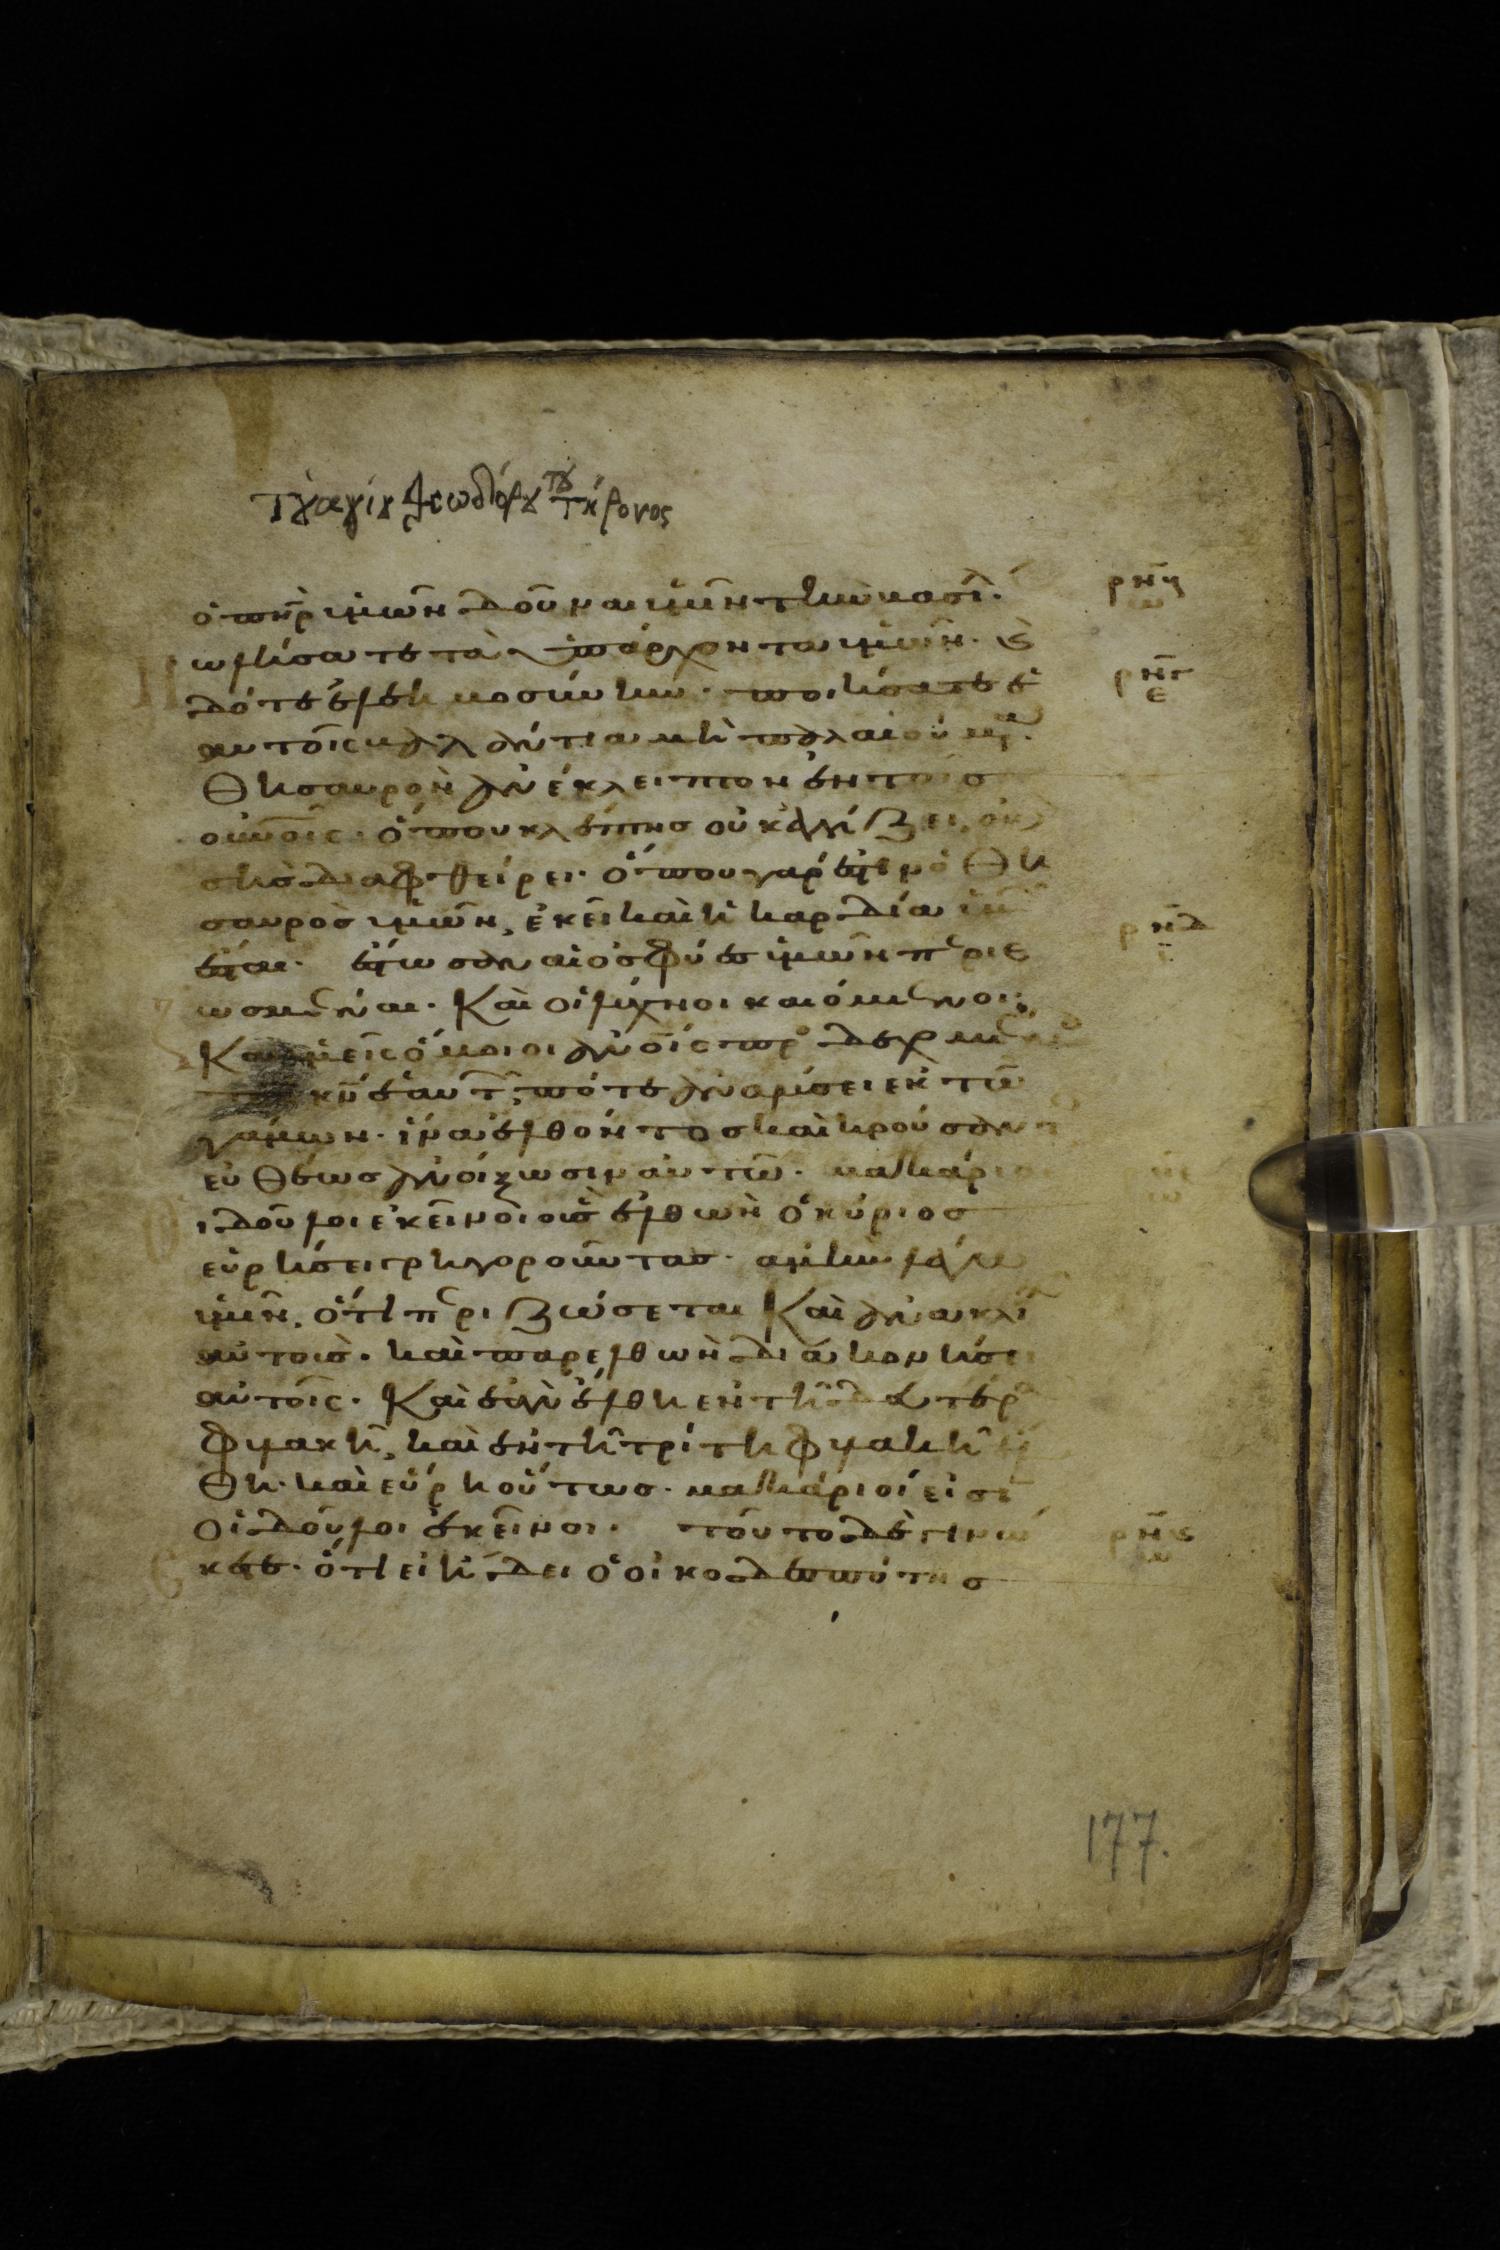 τȣ ἁγίȣ θεωδόρȣ τȣ τήρονος
ὁ πηρ ὑμῶν δοῦναι ὑμῖν τὴν βασι
ωλήσατε τὰ ὑπάρχοντα ὑμῶν. καὶ
δότε ἐλεημοσύνην. ποιήσατε ἑ
αυτοῖς βαλάντια μὴ παλαιούμε
Θησαυρὸν ἀνέκλειπτον ἐν τοῖς
οὐνοῖς. ὅπου κλέπτης οὐκ ἐγγίζει, οὐδὲ
σὴς διαφθείρει. ὅπου γάρ ἐστιν ὁ Θη
σαυρὸς ὑμῶν, ἐκεῖ καὶ ἡ καρδία ὑμ
ἔσται. ἔστωσαν αἱ ὀσφύες ὑμῶν περιε
ωσμέναι. Καὶ οἱ λύχνοι καιόμενοι.
Καὶ ὑμεῖς ὅμοιοι ἀνοις προσδεχομέν
κν ἑαυτ, πότε ἀναλύσει ἐκ τῶ
γάμων. ἵνα ἐλθόντος καὶ κρούσαντ
εὐθέως ἀνοίξωσιν αὐτῶ. μακάριοι
δοῦλοι ἐκεῖνοι οὓς ἐλθὼν ὁ κύριος
εὑρήσει γρηγοροῦντας. ἀμὴν λέγω
ὑμῖν, ὅτι περιζώσεται Καὶ ἀνακλι
αὐτοὺς. καὶ παρελθὼν διακονήσει
αὐτοῖς. Καὶ ἐὰν ἔλθη ἐν τῆ δευτέρ
φυλακῆ, καὶ ἐν τῆ τρίτη φυλακῆ ἔλ
Θη. καὶ εὕρη οὕτως. μακάριοί εἰσι
οἱ δοῦλοι ἐκεῖνοι. τοῦτο δὲ γινώ
κετε. ὅτι εἰ ἤδει ὁ οἰκοδεσπότης
177.